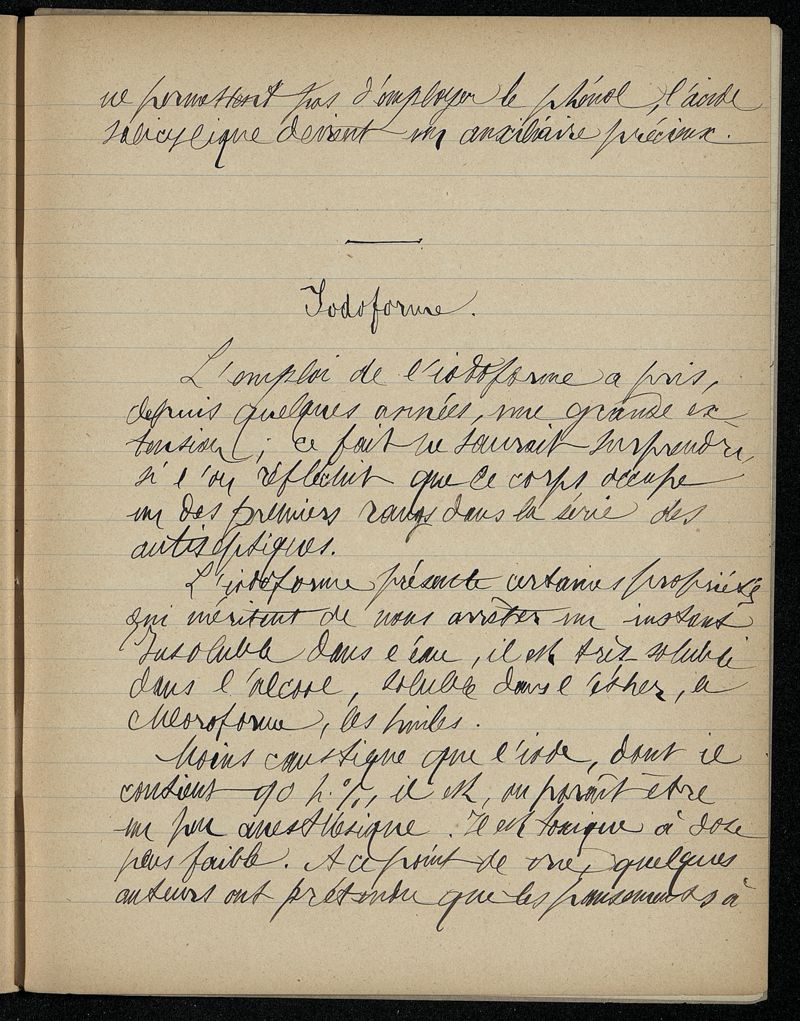 ne permettent pas d'employer le phénol, l'acide
salicylique devient un auxiliaire précieux.
Iodoforme.
L'emploi de l'iodoforme a pris,
depuis quelques années, une grande ex-
tension ; ce fait ne saurait surprendre,
si l'on réfléchit que ce corps occupe
un des premiers rangs dans la série des
antiseptiques.
L'iodoforme présente certaines propriétés
qui méritent de nous arrêter un instant
Insoluble dans l'eau, il est très soluble
dans l'alcool, soluble dans l'éther, le
chloroforme, les huiles.
Moins caustique que l'iode, dont il
contient 90 p. %, il est, ou paraît être
un peu anesthésique. Il est toxique à dose
plus faible. A ce point de vue, quelques
auteurs ont prétendu que les pansements à